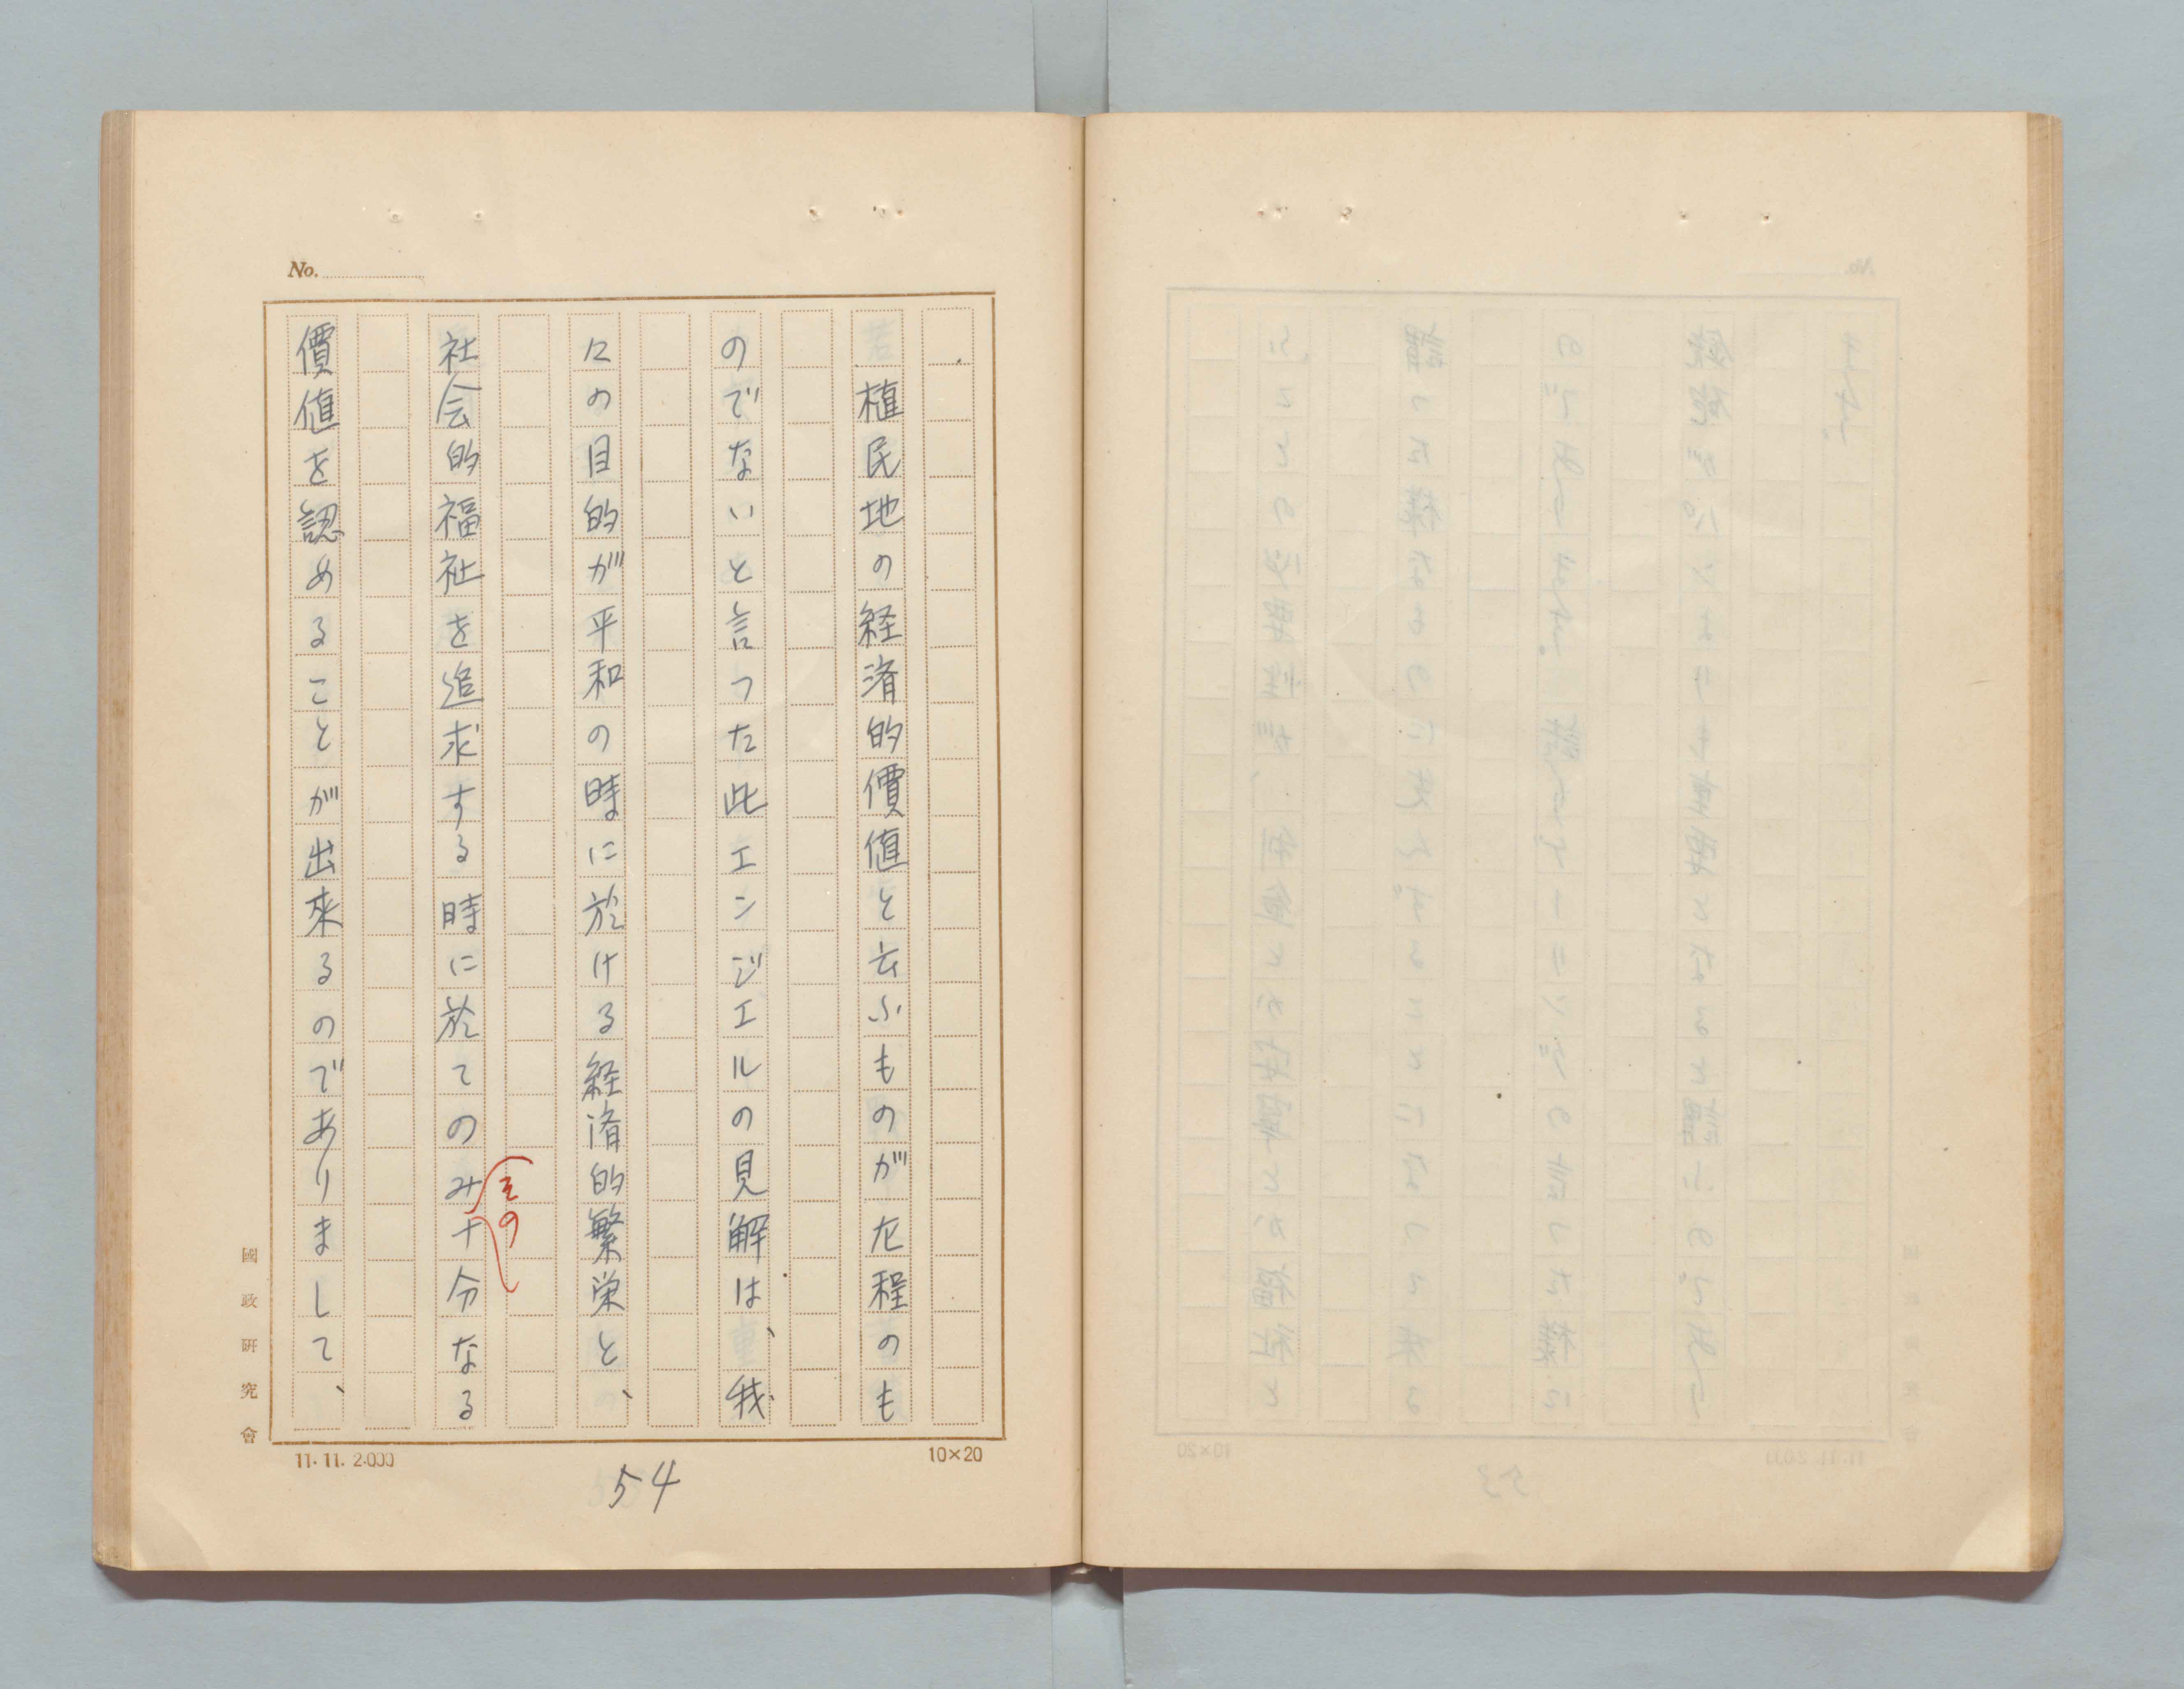 No.
植民地の経済的價値と云ふものが左程のも
のでないと言つた此エンジエルの見解は、我
々の目的が平和の時に於ける経済的繁栄と、
社会的福祉を追求する時に於てのみその十分なる
價値を認めることが出來るのでありまして、
國政研究會
11.11.2.000
10×20
54